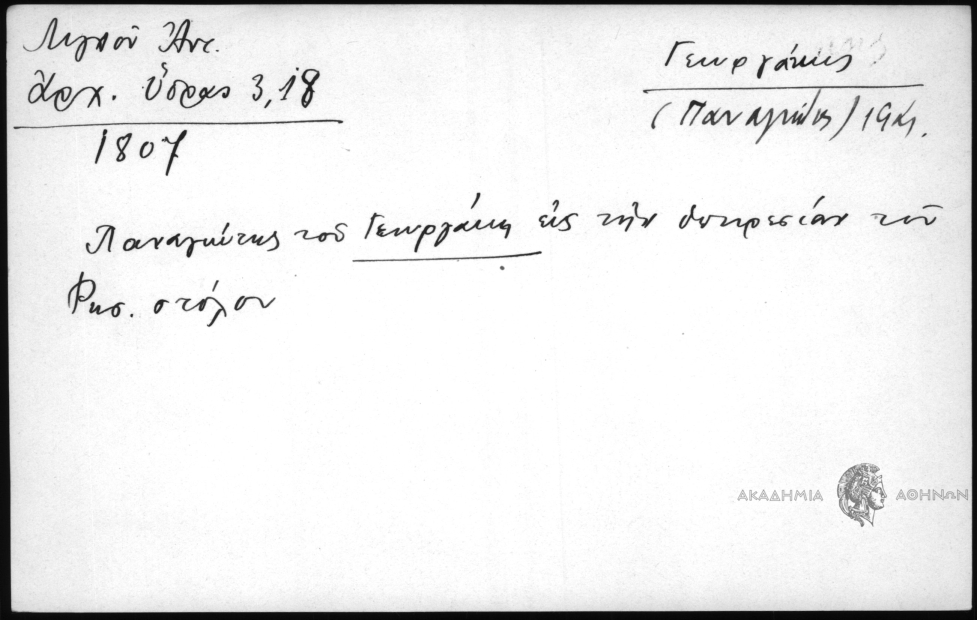 Λιγνοῦ Ἀντ.
Ἀρχ. Ὕδρας 3,18
1807
Γεωργάκης
(Παναγιώτης)
Παναγιώτης τοῦ Γεωργάκη εἰς τὴν ὑπηρεσίαν τοῦ
Ρωσ. στόλου
ΑΚΑΔΗΜΙΑ ΑΘΗΝΩΝ